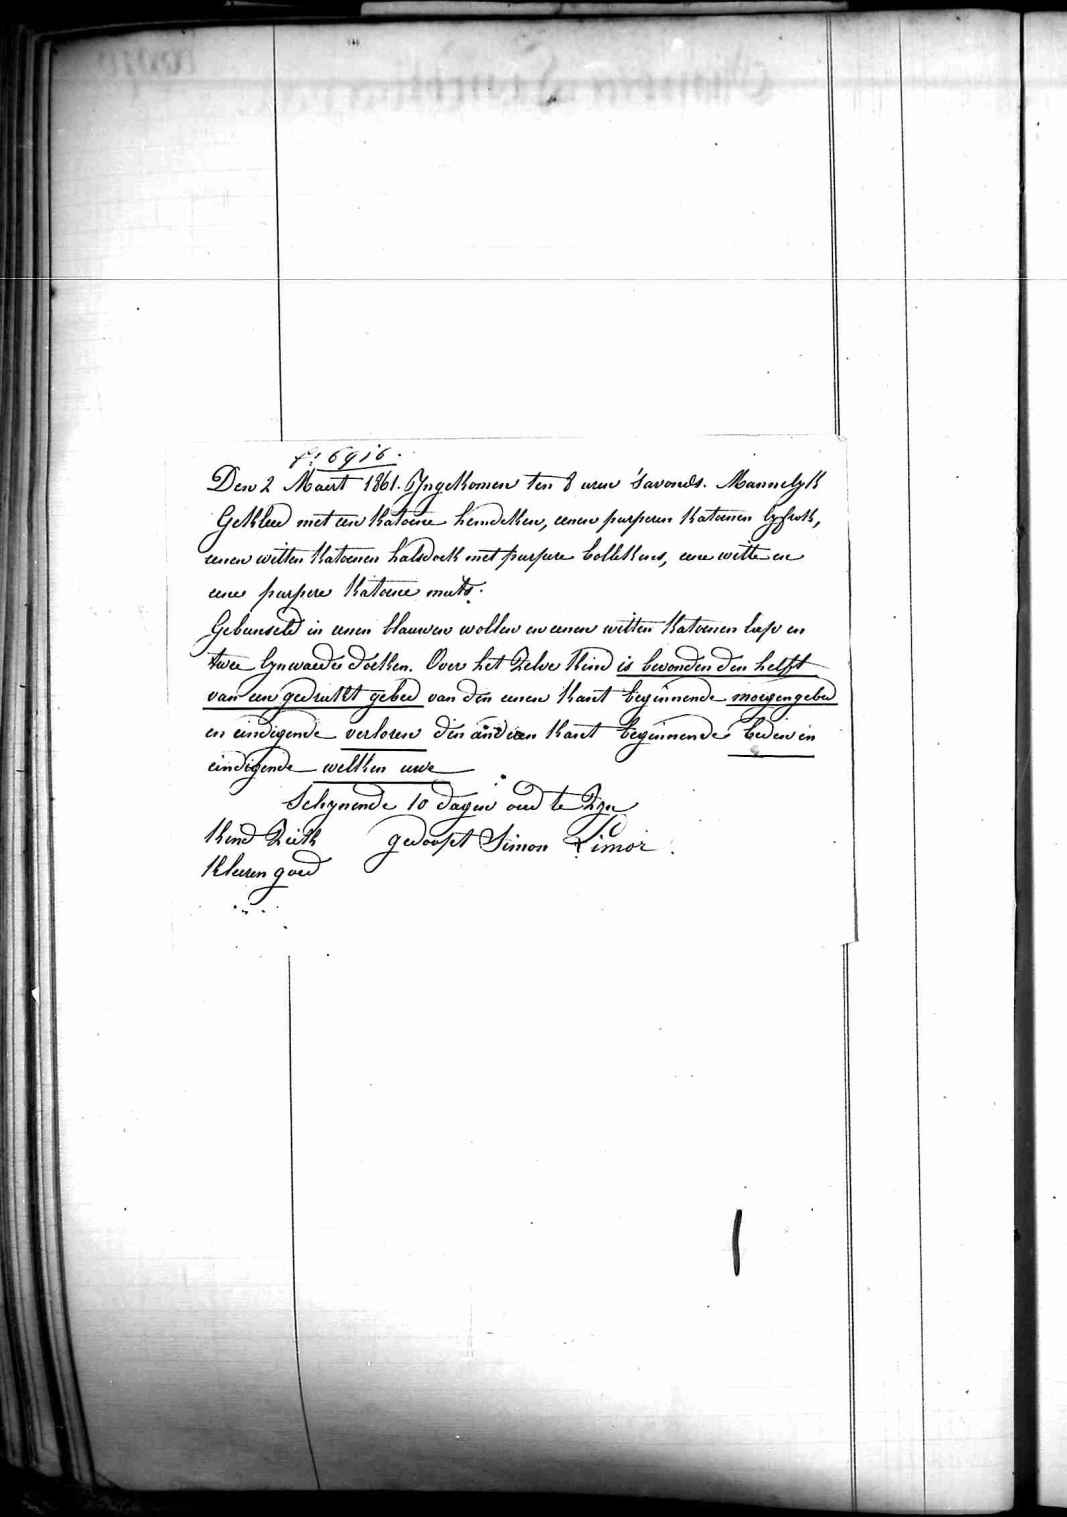 6916.
Den 2 Maert 1861. Yngekomen ten 8 uren 'savonds. Mannelyk
Gekleed met een Katoene hemdeken, eenen purperen Katoenen lyfrok,
eenen witten Katoenen halsdoek met purpure bollekens, eene witte en
eene purpere Katoene muts.
Gebunseld in eenen blauwen wollen en eenen witten Katoenen leep en
twee lynwaede doeken. Over het Zelve Kind is bevonden den helft
van een gedrukt gebed van den eenen Kant beginnende morgengebed
en eindigende verloren den anderen Kant beginnende bedien in
eindigende welken uwe
Schynende 10 dagen oud te Zyn
Kind Ziek gedoopt Simon Limor.
Kleeren goed